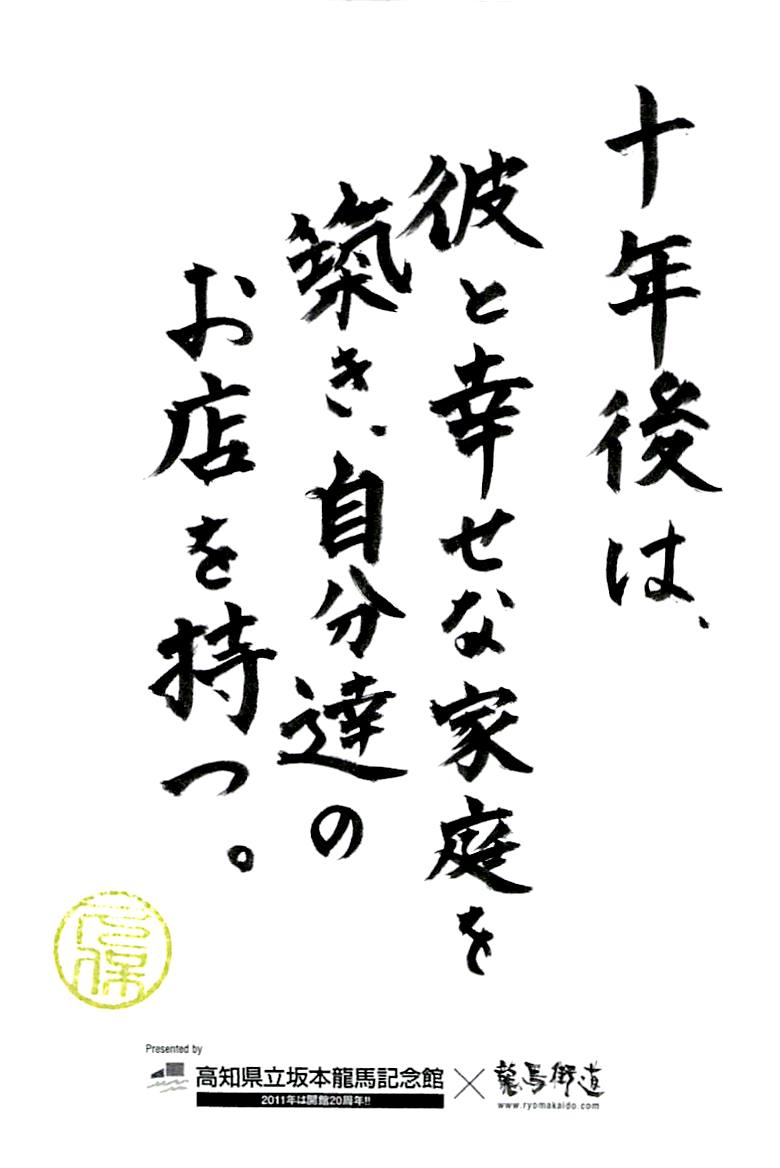 十年後は、
彼と幸せな家庭を
築き、自分達の
お店を持つ。
Presented by
高知県立坂本龍馬記念館
2011年は開館20周年!!
×
龍馬街道
www.ryomakaido.com